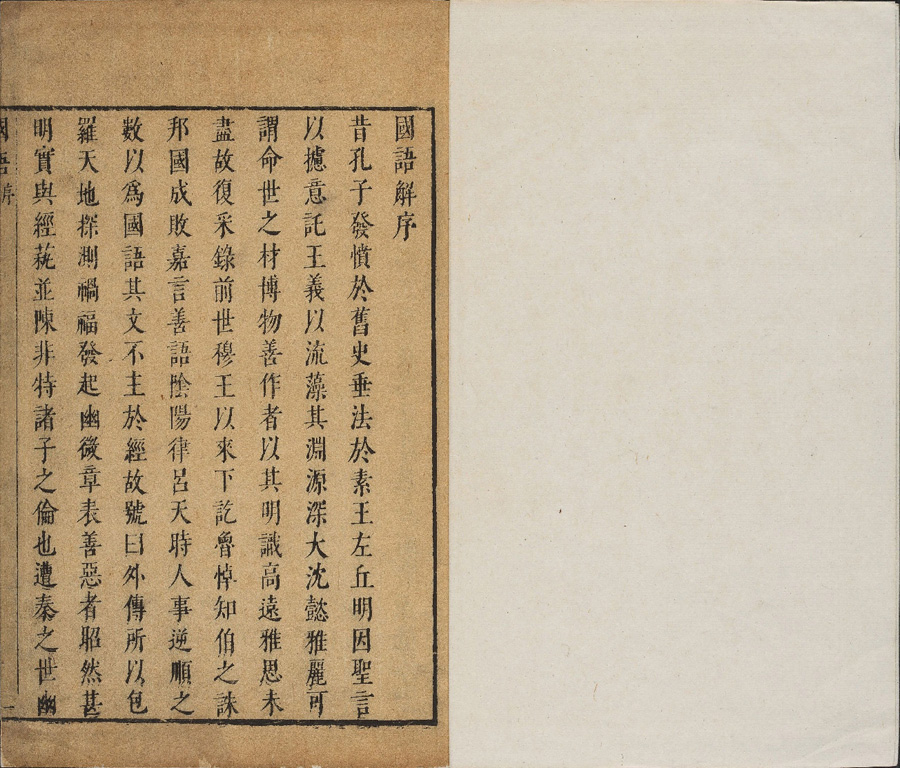 國語解序
昔孔子發憤於舊史垂法於素王左丘明因聖言
以攄意託王義以流藻其淵源深大沈懿雅麗可
謂命世之材博物善作者以其明識高遠雅思未
盡故復采錄前世穆王以來下訖魯悼知伯之誅
邦國成敗嘉言善語陰陽律呂天時人事逆順之
數以爲國語其文不主於經故號曰外傳所以包
羅天地探測禍福發起幽微章表善惡者昭然甚
明實與經蓺並陳非特諸子之倫也遭秦之世幽
國語 序 一